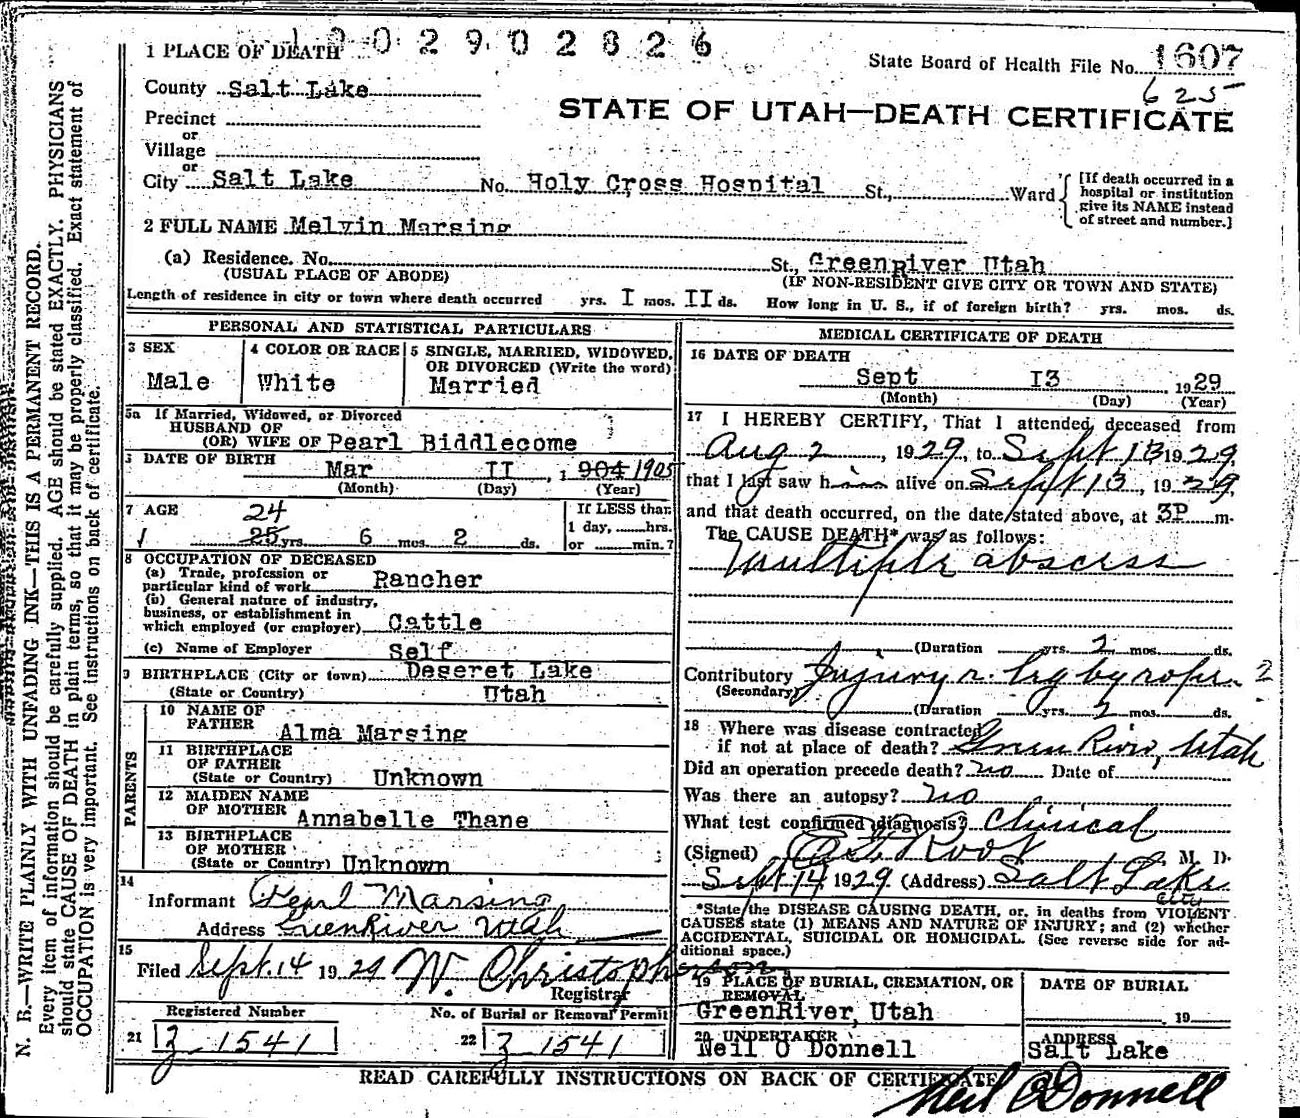 1 PLACE OF DEATH 2 9 0 2 8 2 6
State Board of Health File No. 1607
County Salt Lake 625
STATE OF UTAH—DEATH CERTIFICATE
Precinct
or
Village
or
City Salt Lake No. Holy Cross Hospital St., Ward
[If death occurred in a
hospital or institution
give its NAME instead
of street and number.]
2 FULL NAME Melvin Marsing
(a) Residence. No. St., GreenRiver Utah
(USUAL PLACE OF ABODE) (IF NON-RESIDENT GIVE CITY OR TOWN AND STATE)
Length of residence in city or town where death occurred yrs. I mos. II ds. How long in U. S., if of foreign birth? yrs. mos. ds.
PERSONAL AND STATISTICAL PARTICULARS
3 SEX 4 COLOR OR RACE 5 SINGLE, MARRIED, WIDOWED,
OR DIVORCED (Write the word)
Male White Married
5a If Married, Widowed, or Divorced
HUSBAND OF
(OR) WIFE OF Pearl Biddlecome
6 DATE OF BIRTH Mar II, 1904 1905
(Month) (Day) (Year)
7 AGE 24 If LESS than
1 day, hrs.
25 yrs. 6 mos. 2 ds. or min.?
8 OCCUPATION OF DECEASED
(a) Trade, profession or
particular kind of work Rancher
(b) General nature of industry,
business, or establishment in
which employed (or employer) Cattle
(c) Name of Employer Self
9 BIRTHPLACE (City or town) Deseret Lake
(State or Country) Utah
PARENTS
10 NAME OF
FATHER Alma Marsing
11 BIRTHPLACE
OF FATHER
(State or Country) Unknown
12 MAIDEN NAME
OF MOTHER Annabelle Thane
13 BIRTHPLACE
OF MOTHER
(State or Country) Unknown
14
Informant Pearl Marsing
Address GreenRiver Utah
15
Filed Sept. 14 1929 W. Christopherson
Registrar
Registered Number No. of Burial or Removal Permit
21 3 1541 22 3 1541
MEDICAL CERTIFICATE OF DEATH
16 DATE OF DEATH
Sept I3 1929
(Month) (Day) (Year)
17 I HEREBY CERTIFY, That I attended deceased from
Aug 2, 1929, to Sept 13 1929,
that I last saw him alive on Sept 13, 1929,
and that death occurred, on the date stated above, at 3P m.
The CAUSE DEATH* was as follows:
Multiple abscess
(Duration yrs. 2 mos. ds.
Contributory Injury r. leg by rope. 2
(Secondary)
(Duration yrs. 2 mos. ds.
18 Where was disease contracted
if not at place of death? Green River, Utah
Did an operation precede death? no Date of
Was there an autopsy? no
What test confirmed diagnosis? Clinical
(Signed) Root M. D.
Sept 14 1929 (Address) Salt Lake
City
*State the DISEASE CAUSING DEATH, or, in deaths from VIOLENT
CAUSES state (1) MEANS AND NATURE OF INJURY; and (2) whether
ACCIDENTAL, SUICIDAL OR HOMICIDAL. (See reverse side for ad-
ditional space.)
19 PLACE OF BURIAL, CREMATION, OR
REMOVAL DATE OF BURIAL
GreenRiver, Utah 19
20 UNDERTAKER ADDRESS
Neil O Donnell Salt Lake
READ CAREFULLY INSTRUCTIONS ON BACK OF CERTIFICATE
Neil O'Donnell
N. B.—WRITE PLAINLY WITH UNFADING INK—THIS IS A PERMANENT RECORD.
Every item of information should be carefully supplied. AGE should be stated EXACTLY. PHYSICIANS
should state CAUSE OF DEATH in plain terms, so that it may be properly classified. Exact statement of
OCCUPATION is very important. See instructions on back of certificate.